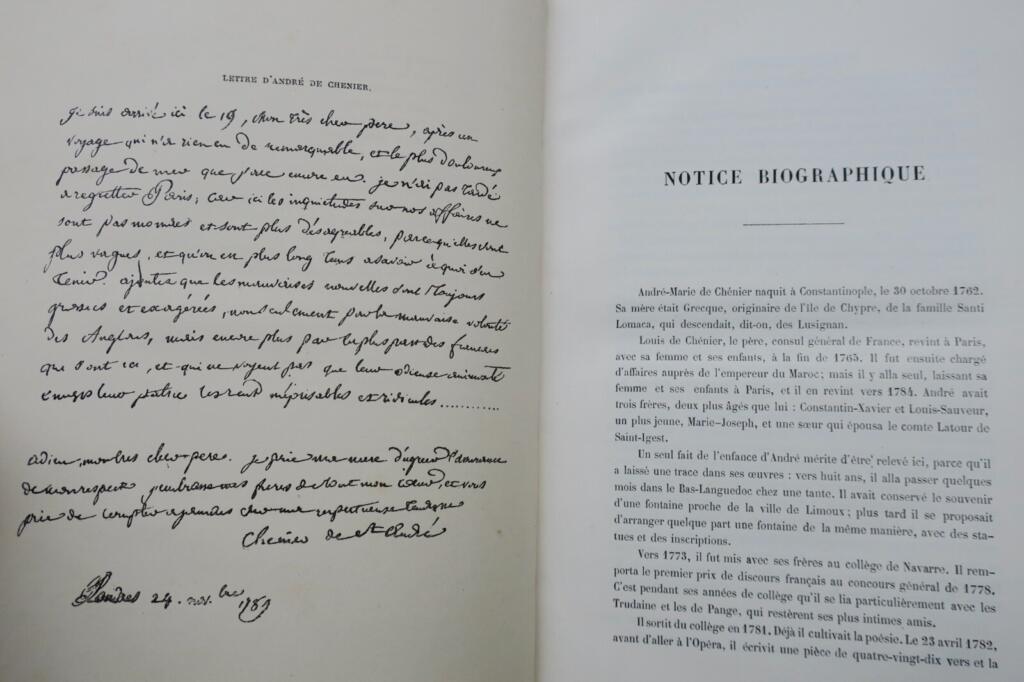 LETTRE D'ANDRÉ DE CHENIER.
je suis arrivé ici le 19, mon très cher pere, après un
voyage qui n'a rien eu de remarquable, et le plus douloureux
passage de mer que j'aie encore eu. je n'ai pas tardé
a regretter Paris; car ici les inquietudes sur nos affaires ne
sont pas moindres et sont plus désagréables, parce qu'elles sont
plus vagues, et qu'on est plus long tems a savoir à quoi s'en
tenir. ajoutés que les mauvaises nouvelles sont toujours
grossies et exagérées, non seulement par la mauvaise volonté
des Anglais, mais encore plus par la plus part des francais
qui sont ici, et qui ne voyent pas que leur odieuse animosité
envers leur patrie les rend méprisables et ridicules............
adieu, mon tres cher pere. je prie ma mere d'agréer l'assurance
de mon respect j'embrasse mes freres de tout mon cœur, et vous
prie de compter a jamais sur ma respectueuse tendresse
Chenier de St André
Londres 24. nov.bre 1789
NOTICE BIOGRAPHIQUE
André-Marie de Chénier naquit à Constantinople, le 30 octobre 1762.
Sa mère était Grecque, originaire de l'île de Chypre, de la famille Santi
Lomaca, qui descendait, dit-on, des Lusignan.
Louis de Chénier, le père, consul général de France, revint à Paris,
avec sa femme et ses enfants, à la fin de 1765. Il fut ensuite chargé
d'affaires auprès de l'empereur du Maroc; mais il y alla seul, laissant sa
femme et ses enfants à Paris, et il en revint vers 1784. André avait
trois frères, deux plus âgés que lui : Constantin-Xavier et Louis-Sauveur,
un plus jeune, Marie-Joseph, et une sœur qui épousa le comte Latour de
Saint-Igest.
Un seul fait de l'enfance d'André mérite d'être relevé ici, parce qu'il
a laissé une trace dans ses œuvres : vers huit ans, il alla passer quelques
mois dans le Bas-Languedoc chez une tante. Il avait conservé le souvenir
d'une fontaine proche de la ville de Limoux; plus tard il se proposait
d'arranger quelque part une fontaine de la même manière, avec des sta-
tues et des inscriptions.
Vers 1773, il fut mis avec ses frères au collège de Navarre. Il rem-
porta le premier prix de discours français au concours général de 1778.
C'est pendant ses années de collège qu'il se lia particulièrement avec les
Trudaine et les de Pange, qui restèrent ses plus intimes amis.
Il sortit du collège en 1781. Déjà il cultivait la poésie. Le 23 avril 1782,
avant d'aller à l'Opéra, il écrivit une pièce de quatre-vingt-dix vers et la